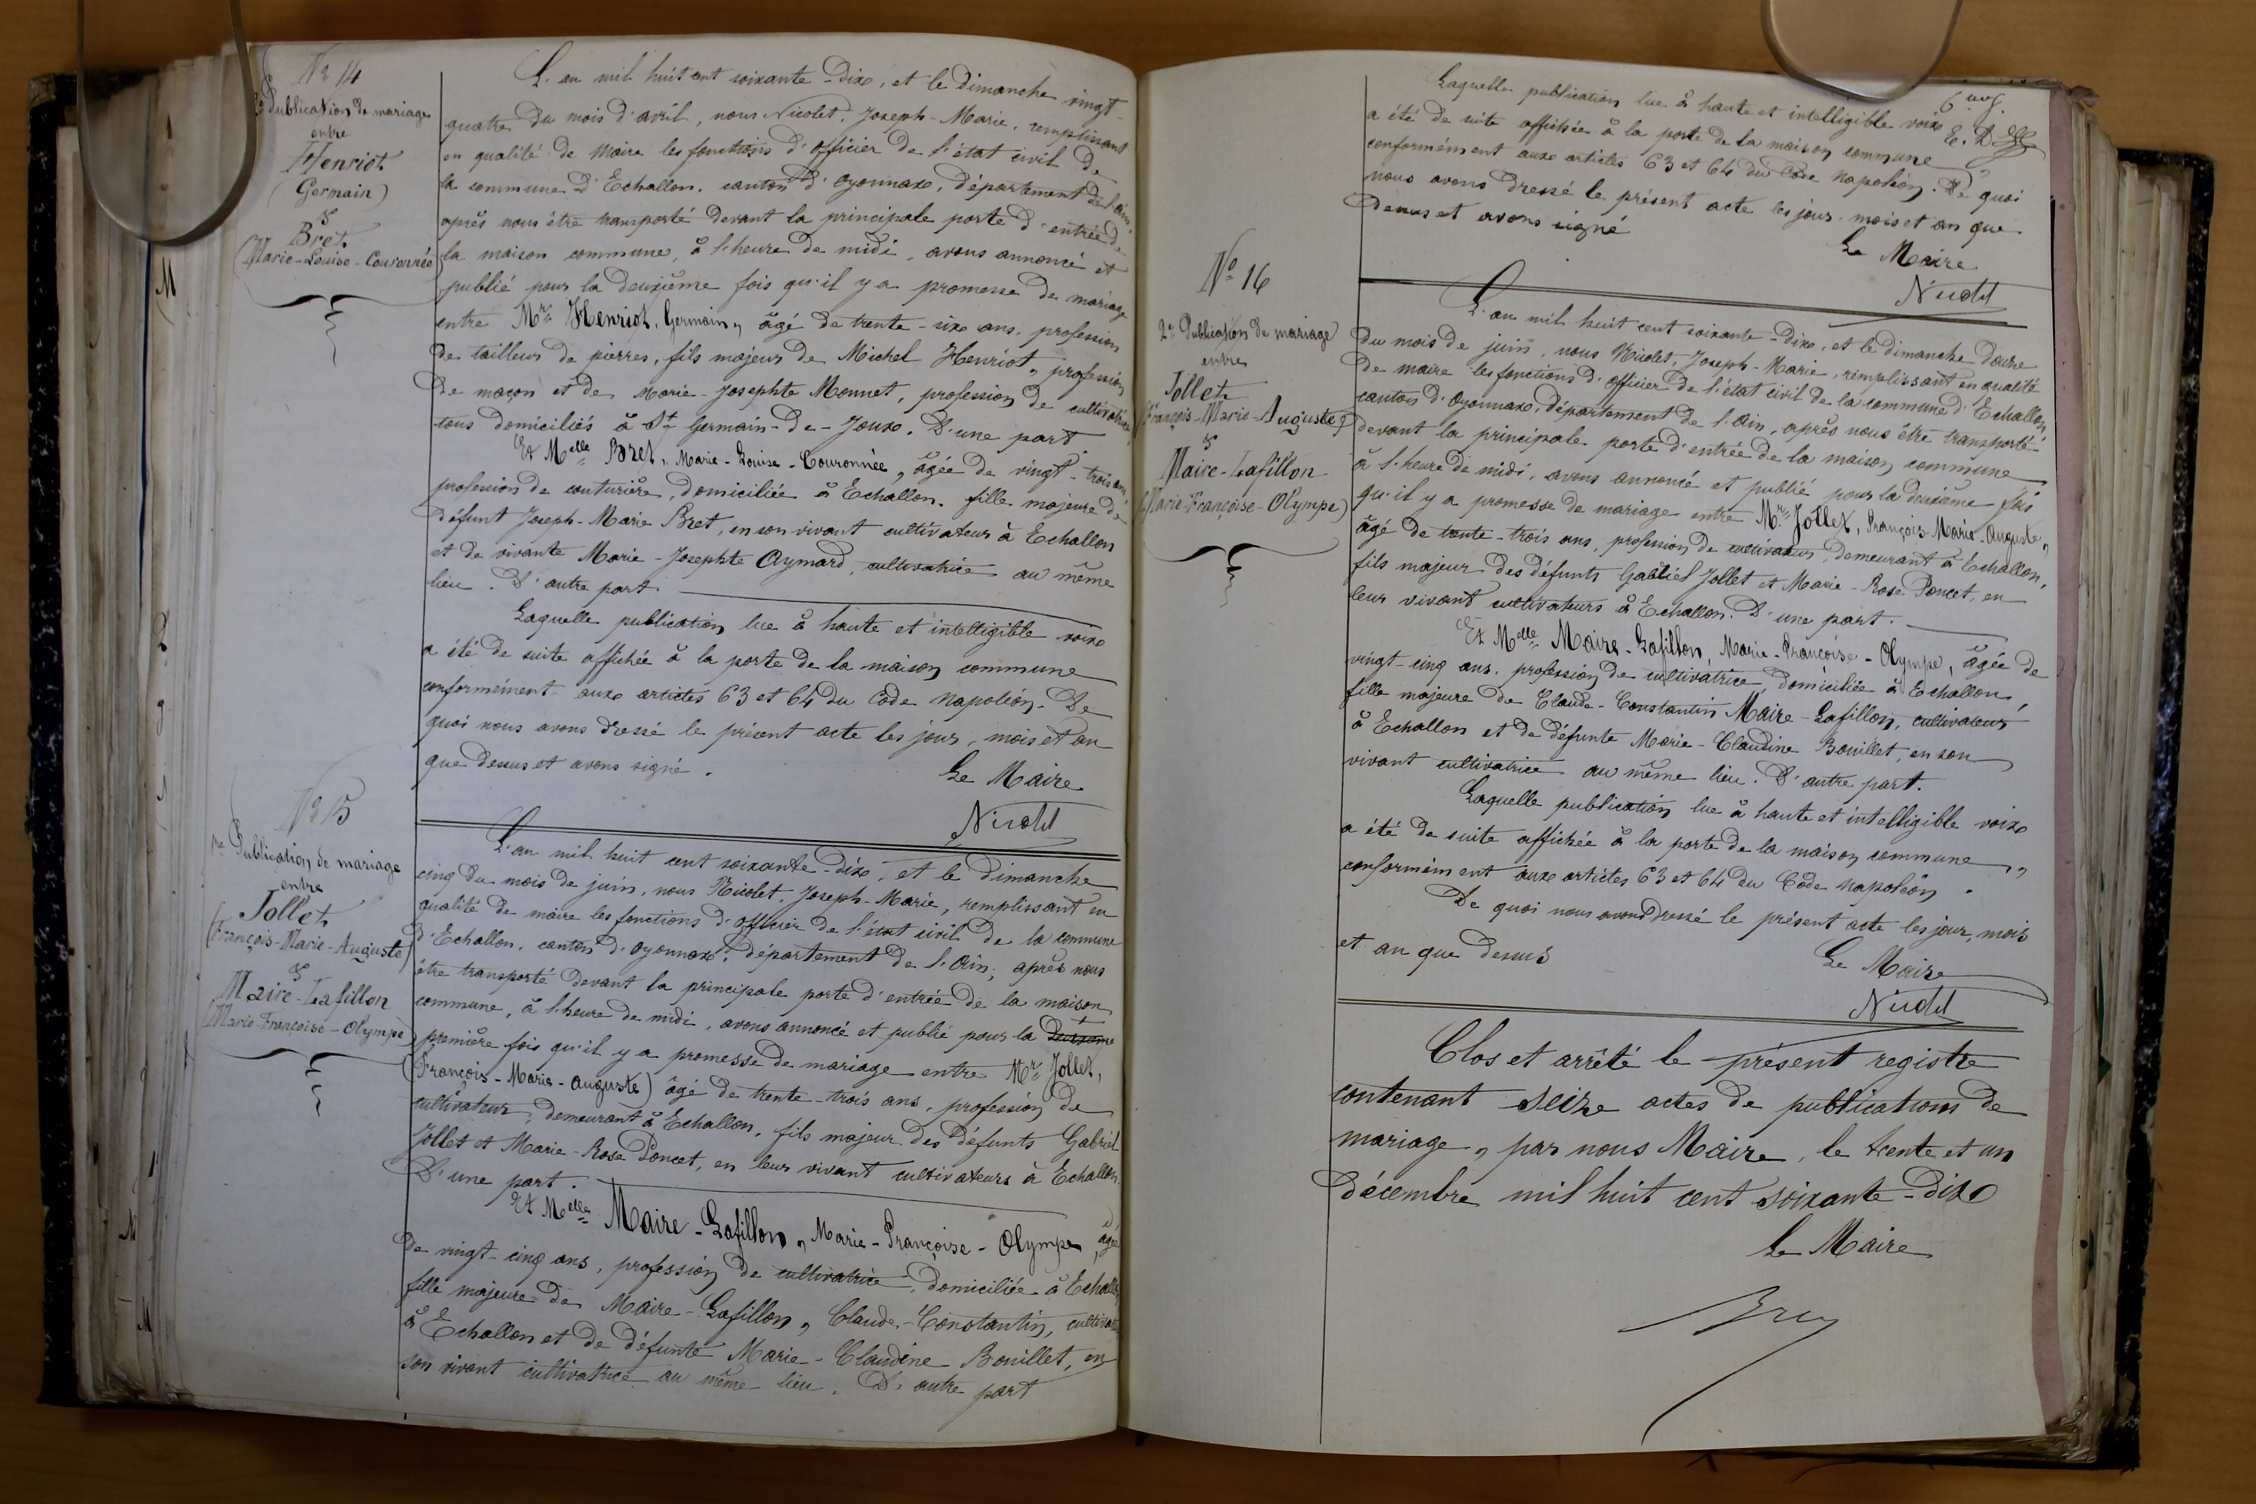 N° 14
2e Publication de mariage
entre
Henriot
(Germain)
&
Bret
(Marie-Louise-Couronnée)
L'an mil huit cent soixante-dix, et le dimanche vingt-
quatre du mois d'avril, nous Nicolet, Joseph-Marie, remplissant
en qualité de Maire les fonctions d'officier de l'état civil de
la commune d'Echallon, canton d'Oyonnax, département de l'Ain,
après nous être transporté devant la principale porte d'entrée de
la maison commune, à l'heure de midi, avons annoncé et
publié pour la deuxième fois qu'il y a promesse de mariage
entre Mr. Henriot, Germain, âgé de trente-six ans, profession
de tailleur de pierres, fils majeur de Michel Henriot, profession
de maçon et de Marie-Josephte Monnet, profession de cultivatrice,
tous domiciliés à St Germain-de-Joux. D'une part.
Et Melle Bret, Marie-Louise-Couronnée, âgée de vingt-trois ans,
profession de couturière, domiciliée à Echallon, fille majeure de
défunt Joseph-Marie Bret, en son vivant cultivateur à Echallon
et de vivante Marie-Josephte Aymard, cultivatrice au même
lieu. D'autre part.
Laquelle publication lue à haute et intelligible voix
a été de suite affichée à la porte de la maison commune
conformément aux articles 63 et 64 du Code Napoléon. De
quoi nous avons dressé le présent acte les jour, mois et an
que dessus et avons signé.
Le Maire
Nicolet
N° 15
1re Publication de mariage
entre
Jollet
(François-Marie-Auguste)
&
Maire-Lafillon
(Marie-Françoise-Olympe)
L'an mil huit cent soixante-dix, et le dimanche
cinq du mois de juin, nous Nicolet, Joseph-Marie, remplissant en
qualité de maire les fonctions d'officier de l'état civil de la commune
d'Echallon, canton d'Oyonnax, département de l'Ain, après nous
être transporté devant la principale porte d'entrée de la maison
commune, à l'heure de midi, avons annoncé et publié pour la deuxième
première fois qu'il y a promesse de mariage entre Mr. Jollet,
(François-Marie-Auguste) âgé de trente-trois ans, profession de
cultivateur, demeurant à Echallon, fils majeur des défunts Gabriel
Jollet et Marie-Rose Poncet, en leur vivant cultivateurs à Echallon.
D'une part.
Et Melle Maire-Lafillon, Marie-Françoise-Olympe, âgée
de vingt-cinq ans, profession de cultivatrice, domiciliée à Echallon,
fille majeure de Maire-Lafillon, Claude-Constantin, cultivateur
à Echallon et de défunte Marie-Claudine Bouillet, en
son vivant cultivatrice au même lieu. D'autre part
Laquelle publication lue à haute et intelligible voix
a été de suite affichée à la porte de la maison commune
conformément aux articles 63 et 64 du Code Napoléon. De quoi
nous avons dressé le présent acte les jour, mois et an que
dessus et avons signé
Le Maire
Nicolet
N° 16
2e Publication de mariage
entre
Jollet
(François-Marie-Auguste)
&
Maire-Lafillon
(Marie-Françoise-Olympe)
L'an mil huit cent soixante-dix, et le dimanche douze
du mois de juin, nous Nicolet, Joseph-Marie, remplissant en qualité
de maire les fonctions d'officier de l'état civil de la commune d'Echallon,
canton d'Oyonnax, département de l'Ain, après nous être transporté
devant la principale porte d'entrée de la maison commune
à l'heure de midi, avons annoncé et publié pour la deuxième fois
qu'il y a promesse de mariage entre Mr. Jollet, François-Marie-Auguste,
âgé de trente-trois ans, profession de cultivateur, demeurant à Echallon,
fils majeur des défunts Gabriel Jollet et Marie-Rose Poncet, en
leur vivant cultivateurs à Echallon. D'une part.
Et Melle Maire-Lafillon, Marie-Françoise-Olympe, âgée de
vingt-cinq ans, profession de cultivatrice, domiciliée à Echallon,
fille majeure de Claude-Constantin Maire-Lafillon, cultivateur
à Echallon et de défunte Marie-Claudine Bouillet, en son
vivant cultivatrice au même lieu. D'autre part.
Laquelle publication lue à haute et intelligible voix
a été de suite affichée à la porte de la maison commune,
conformément aux articles 63 et 64 du Code Napoléon.
De quoi nous avons dressé le présent acte les jour, mois
et an que dessus
Le Maire
Nicolet
Clos et arrêté le présent registre
contenant seize actes de publications de
mariage, par nous Maire, le trente et un
décembre mil huit cent soixante-dix
Le Maire